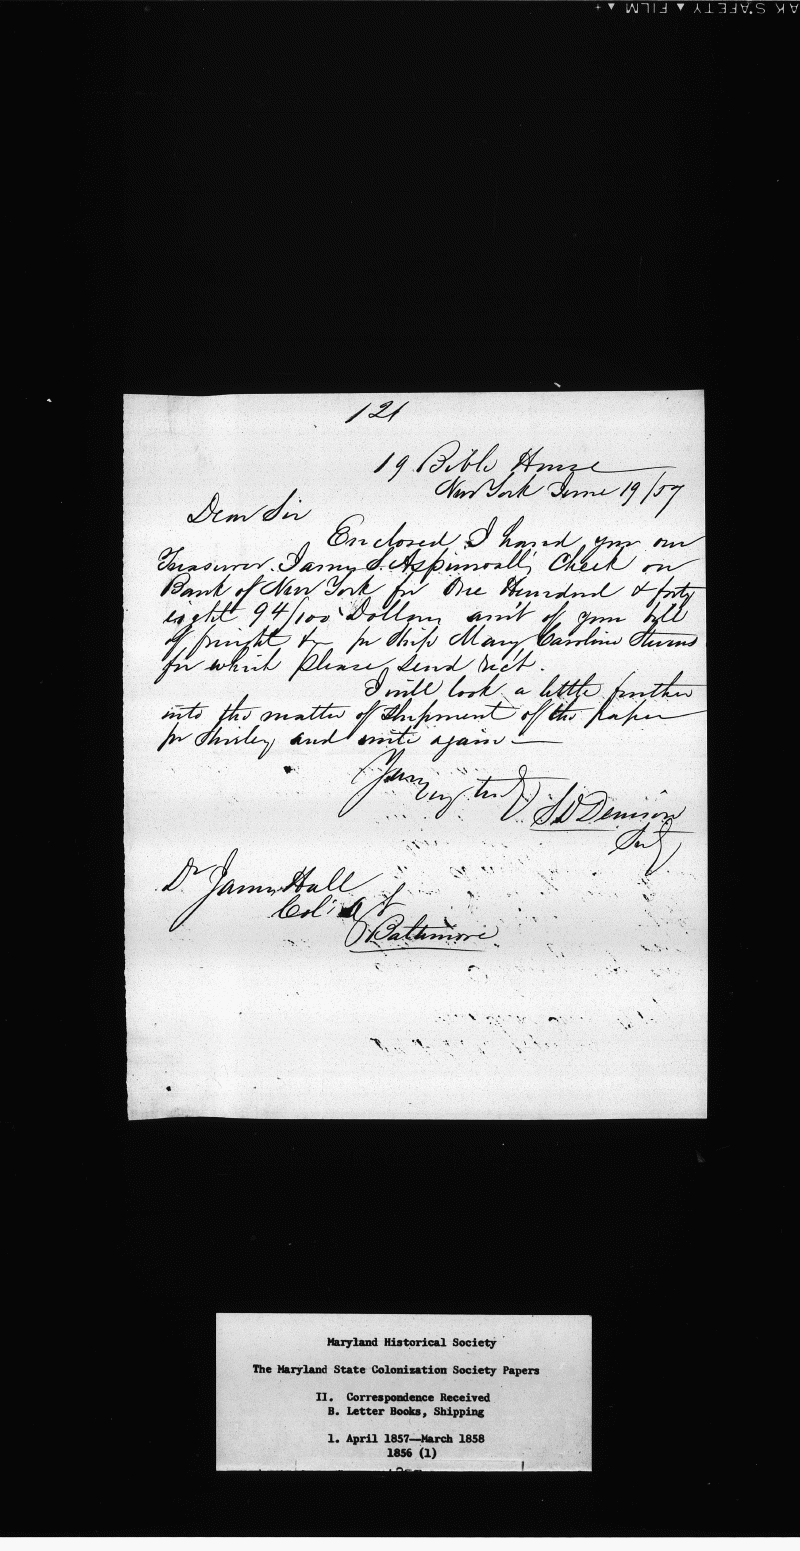 121
19 Bible House
New York June 19/57
Dear Sir
Enclosed I hand you our
Treasurer James S. Aspinwall's Check on
Bank of New York for One Hundred & forty
eight 94/100 Dollars am't of your bill
of freight &c pr Ship Mary Caroline Stevens
for which please send rec't.
I will look a little further
into the matter of Shipment of the paper
pr and write again
Yours very truly
S D Denison
Secty
Dr James Hall
Col'n
Baltimore
Maryland Historical Society
The Maryland State Colonization Society Papers
II. Correspondence Received
B. Letter Books, Shipping
1. April 1857—March 1858
1856 (1)
SAFETY ▲ FILM ▲ +